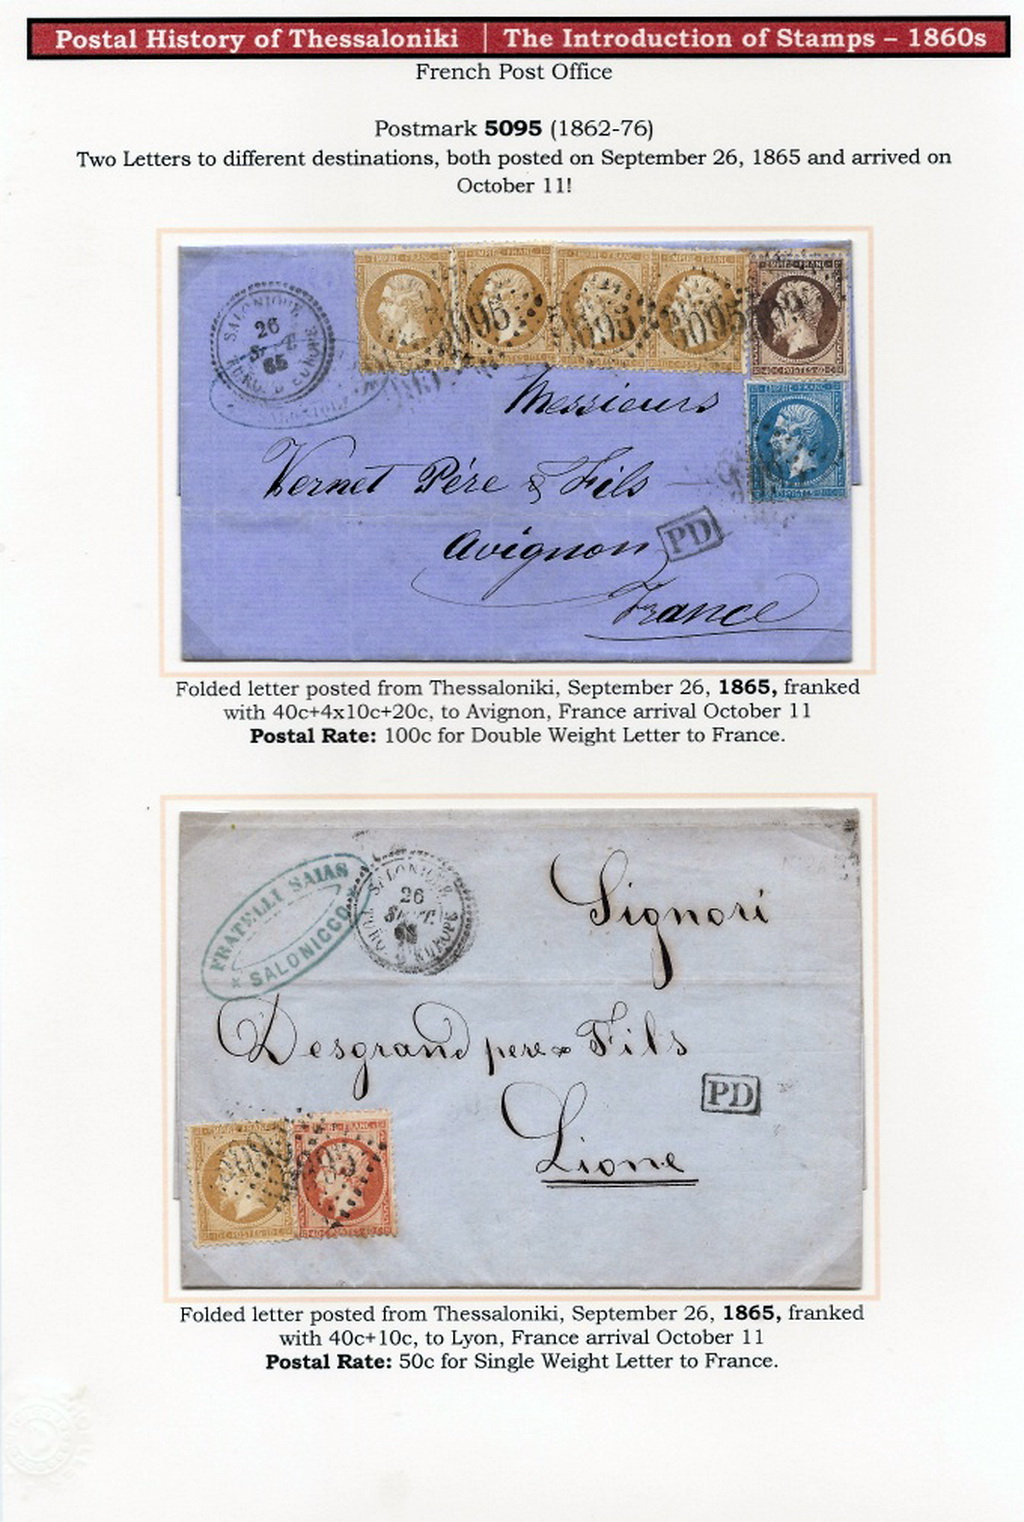 Postal History of Thessaloniki | The Introduction of Stamps – 1860s
French Post Office
Postmark 5095 (1862-76)
Two Letters to different destinations, both posted on September 26, 1865 and arrived on
October 11!
EMPIRE FRANC
SALONIQUE
26
65
TURQ. D'EUROPE
5095
Messieurs
Vernet Père & Fils
Avignon
PD
France
Folded letter posted from Thessaloniki, September 26, 1865, franked
with 40c+4x10c+20c, to Avignon, France arrival October 11
Postal Rate: 100c for Double Weight Letter to France.
FRATELLI SAIAS
SALONICCO
SALONIQUE
26
SEPT
65
TURQ. D'EUROPE
Signori
Desgrand pere & Fils
PD
Lione
EMPIRE FRANC
5095
Folded letter posted from Thessaloniki, September 26, 1865, franked
with 40c+10c, to Lyon, France arrival October 11
Postal Rate: 50c for Single Weight Letter to France.